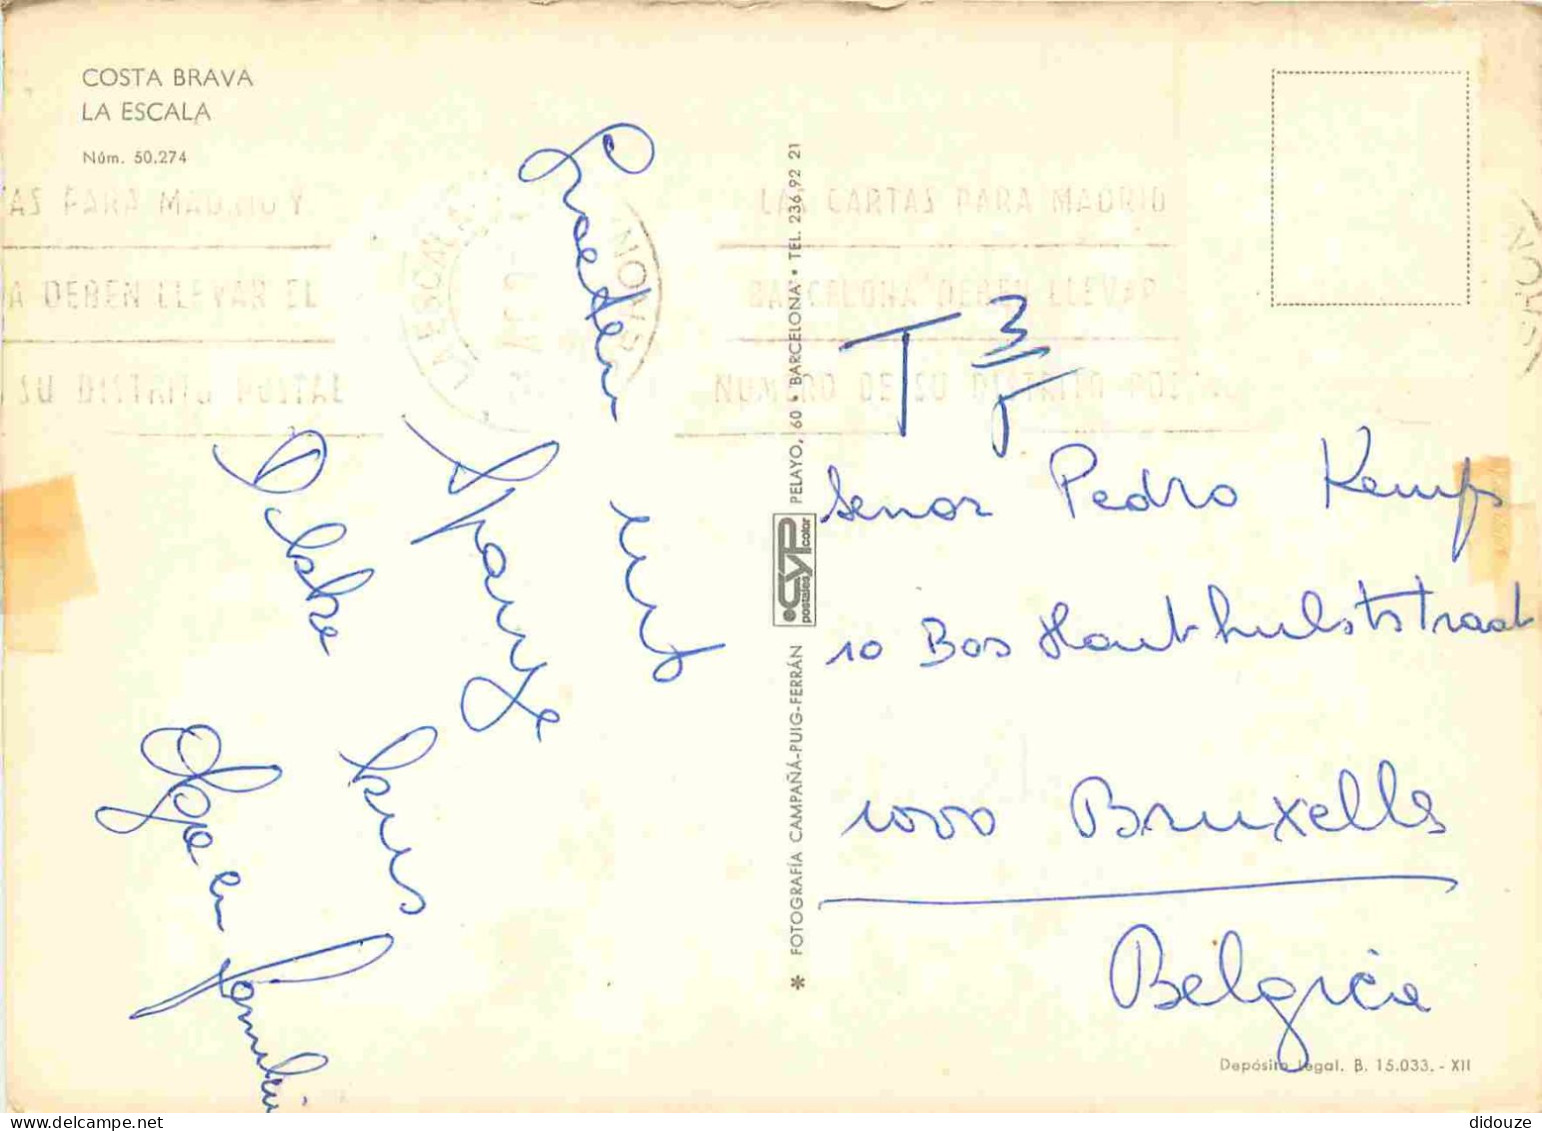 COSTA BRAVA
LA ESCALA
Núm. 50.274
AS PARA MADRID Y
A DEBEN LLEVAR EL
SU DISTRITO POSTAL
LA ESCALA
LAS CARTAS PARA MADRID
BARCELONA DEBEN LLEVAR
NUMERO DE SU DISTRITO POSTAL
Groeten
uit
Spanje
Dikke
kus
Olga en familie
* FOTOGRAFÍA CAMPAÑÁ-PUIG-FERRÁN
CYP
postales color
PELAYO, 60 • BARCELONA • TEL. 236 92 21
T 3/5
Senor Pedro Kemps
10 Bos Houthulststraat
1000 Bruxelles
Belgica
Depósito Legal. B. 15.033. - XII
didouze
delcampe.net